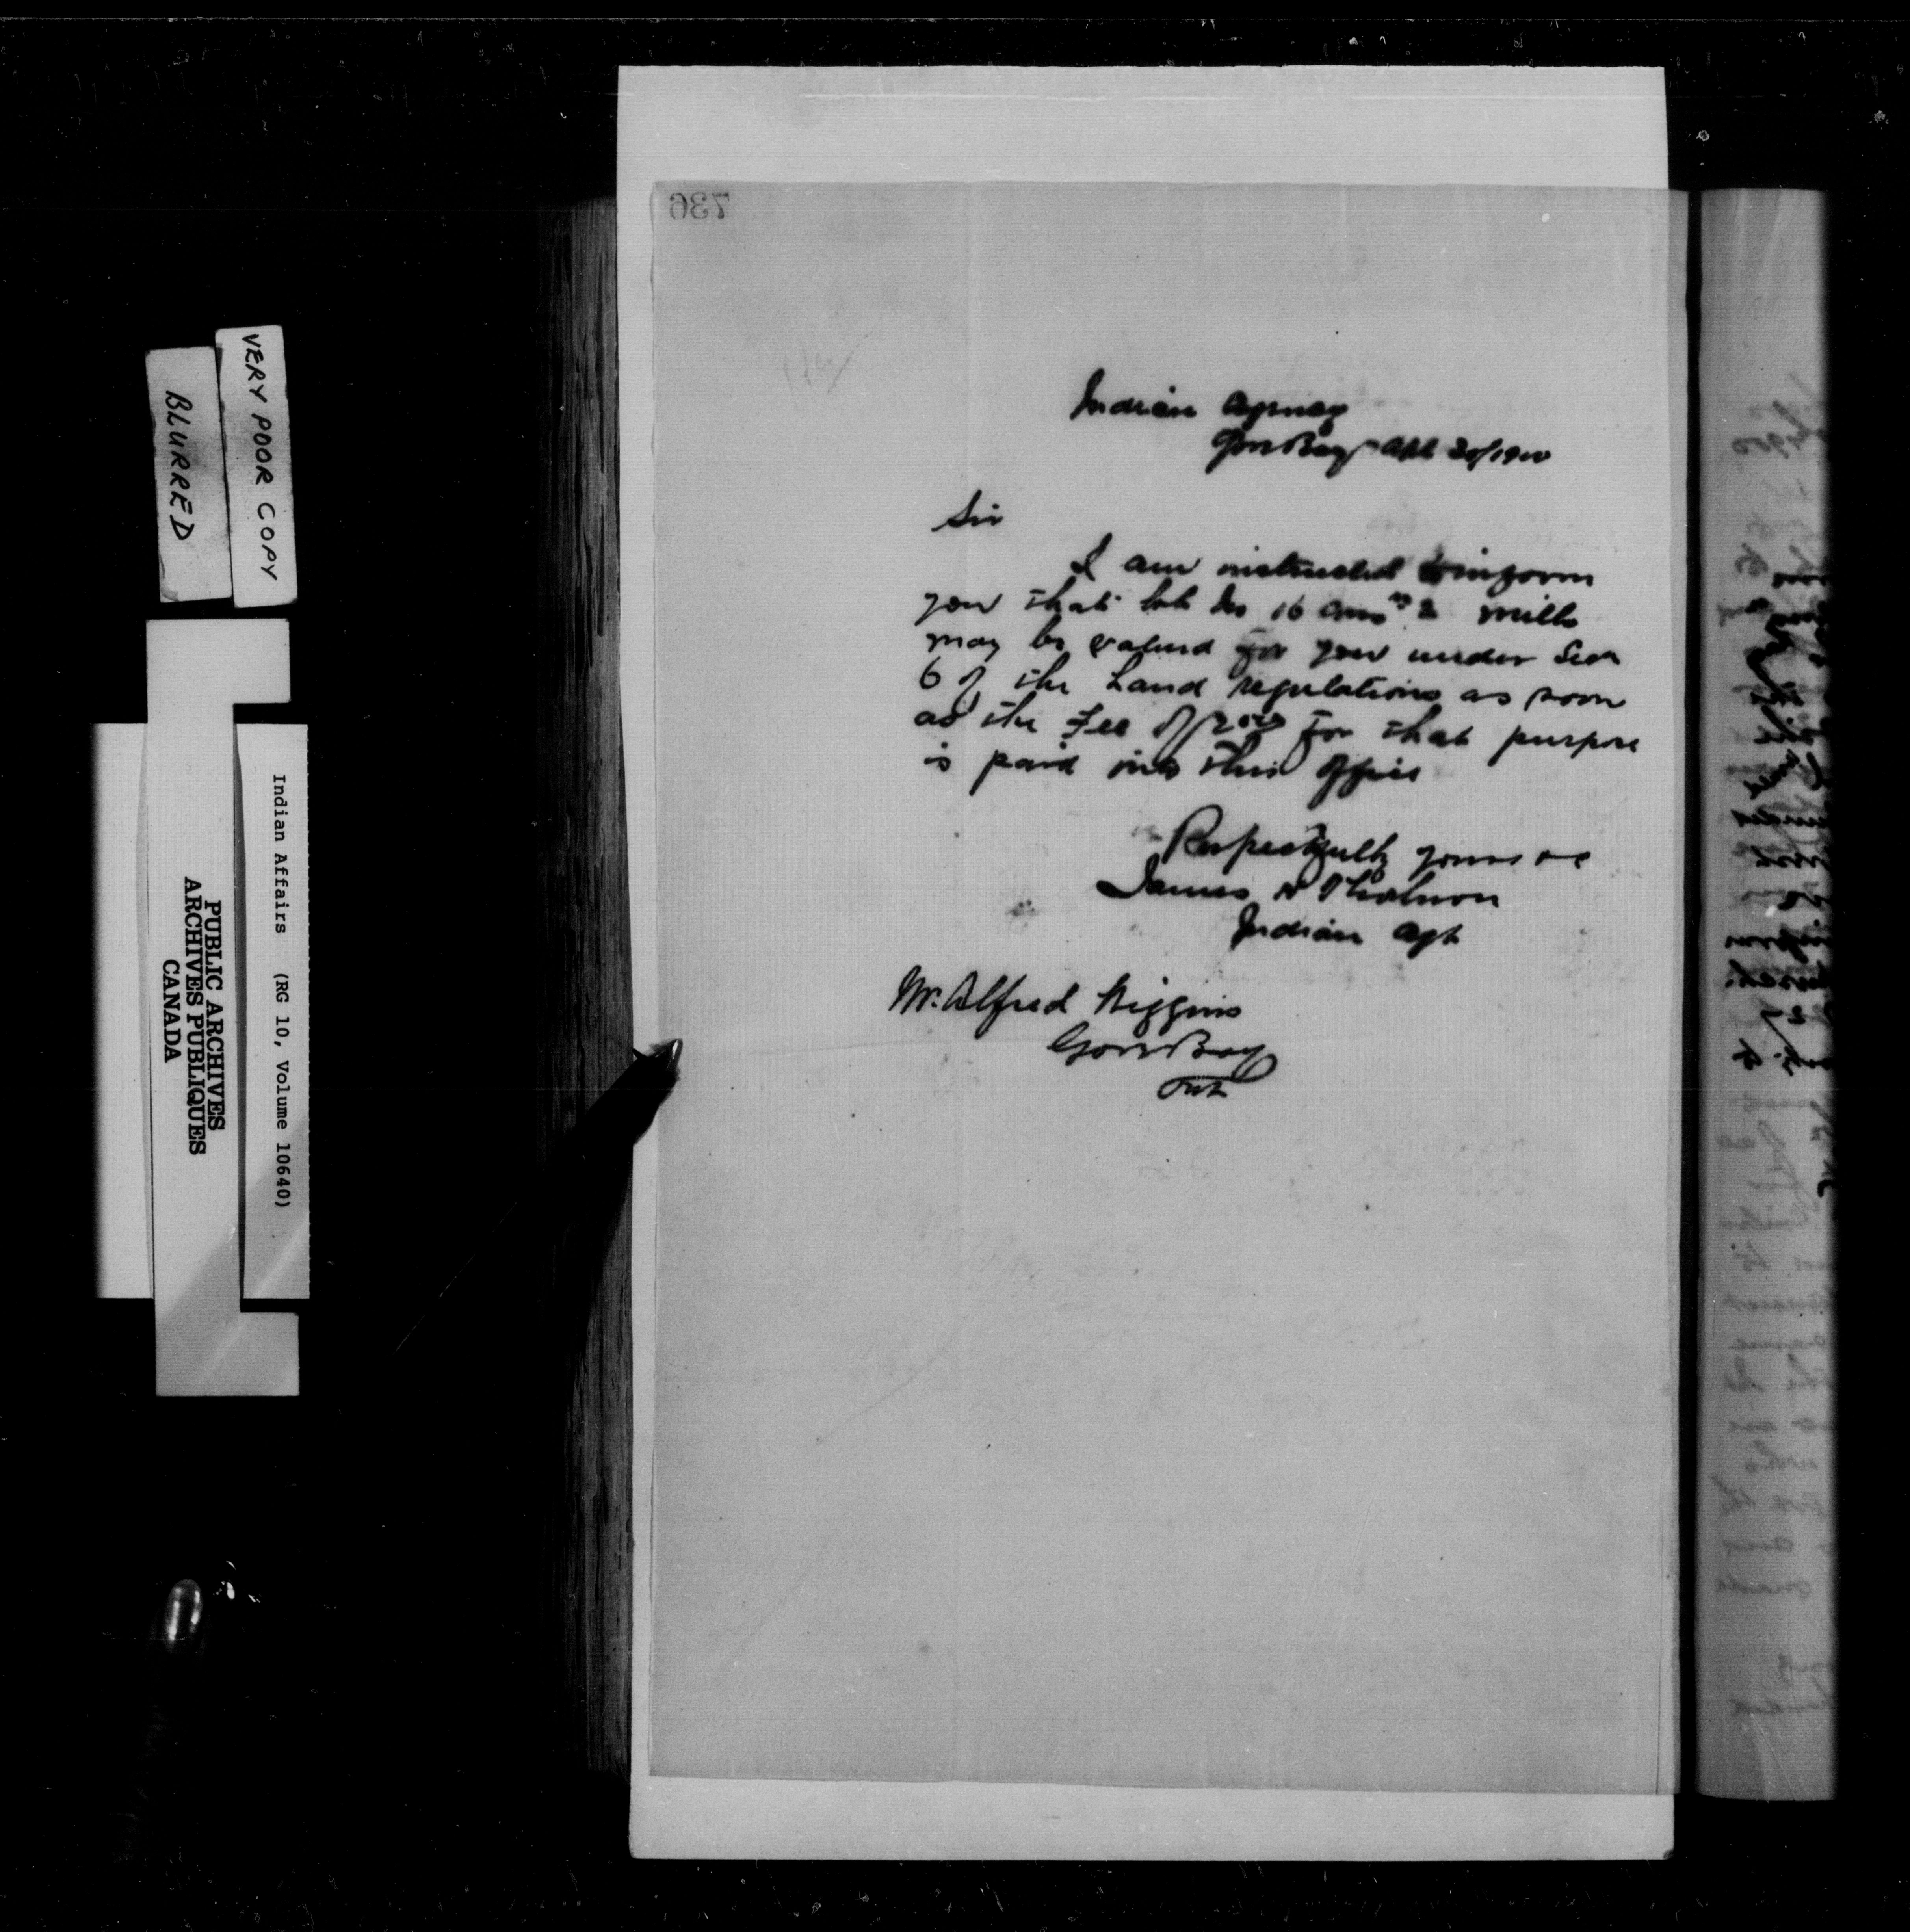 736
Indian Agency
Gore Bay Apl 20/1900
Sir
I am instructed to inform
you that lot No 16 Con 2 Mills
may be valued for you under Sec
6 of the Land regulations as soon
as the Fee of $2.00 for that purpose
is paid into this office
Respectfully yours
James H
Indian Agt
Mr. Alfred Higgins
Gore Bay
Ont
VERY POOR COPY
BLURRED
Indian Affairs (RG 10, Volume 10640)
PUBLIC ARCHIVES
ARCHIVES PUBLIQUES
CANADA